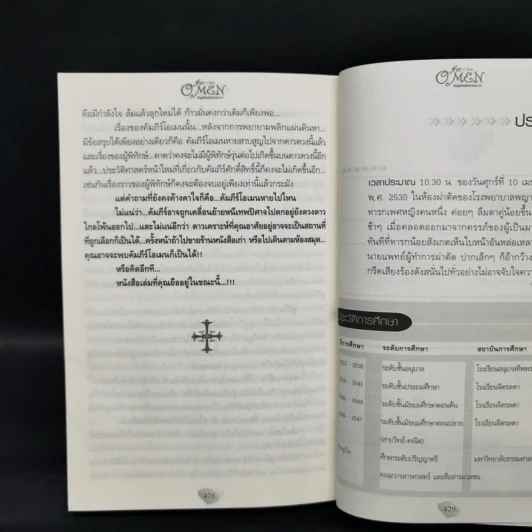 The OMEN
คือมีกำลังใจ ล้มแล้วลุกใหม่ได้ ก้าวมั่นคงกว่าเดิมก็เพียงพอ...
เรื่องของคัมภีร์โอเมนนั้น...หลังจากการพยายามพลิกแผ่นดินหา...
มีข้อสรุปได้เพียงอย่างเดียวก็คือ คัมภีร์โอเมนหายสาบสูญไปจากดาวดวงนี้แล้ว
และเรื่องของผู้พิทักษ์...คาดว่าคงจะไม่มีผู้พิทักษ์รุ่นต่อไปเกิดขึ้นบนดาวดวงนี้อีก
แล้ว...ประวัติศาสตร์หน้าใหม่ที่เกี่ยวกับคัมภีร์ศักดิ์สิทธิ์นี้ก็คงจะไม่เกิดขึ้นอีก...
เช่นกันเรื่องราวของผู้พิทักษ์ก็คงจะต้องจบอยู่เพียงเท่านี้แล้วกระมัง
แต่คำถามที่ยังคงค้างคาใจก็คือ...คัมภีร์โอเมนหายไปไหน
ไม่แน่ว่า...คัมภีร์อาจถูกเคลื่อนย้ายหนีเทพปีศาจไปตกอยู่ยังดวงดาว
ไกลโพ้นออกไป...และไม่แน่อีกว่า ดาวเคราะห์ที่คุณอาศัยอยู่อาจจะเป็นสถานที่
ที่ถูกเลือกก็เป็นได้...ครั้งหน้าถ้าไปขายร้านหนังสือเก่า หรือไปเดินตามห้องสมุด...
คุณอาจจะพบคัมภีร์โอเมนก็เป็นได้!!
หรือคิดอีกที...
หนังสือเล่มที่คุณถืออยู่ในขณะนี้...!!!
428
The OMEN
ประ
เวลาประมาณ 10.30 น. ของวันศุกร์ที่ 10 เม
พ.ศ. 2530 ในห้องผ่าตัดของโรงพยาบาลพญา
ทารกเพศหญิงคนหนึ่ง ค่อยๆ ลืมตาคู่น้อยขึ้น
ช้าๆ เมื่อคลอดออกมาจากครรภ์ของผู้เป็นมา
ทันทีที่ทารกน้อยสังเกตเห็นใบหน้าอันหล่อเหลา
นายแพทย์ผู้ทำการผ่าตัด ปากเล็กๆ ก็อ้ากว้าง
กรีดเสียงร้องดังสนั่นไปทั่วอย่างไม่อาจจับใจความ
ประวัติการศึกษา
ปีการศึกษา ระดับการศึกษา สถาบันการศึกษา
2535 ระดับชั้นอนุบาล โรงเรียนอนุบาลทิพพร
2541 ระดับชั้นประถมศึกษา โรงเรียนจิตรลดา
2544 ระดับชั้นมัธยมศึกษาตอนต้น โรงเรียนจิตรลดา
2547 ระดับชั้นมัธยมศึกษาตอนปลาย โรงเรียนจิตรลดา
(สายวิทย์-คณิต)
ศึกษาระดับปริญญาตรี มหาวิทยาลัยธรรมศา
คณะวารสารศาสตร์ และสื่อสารมวลชน
429